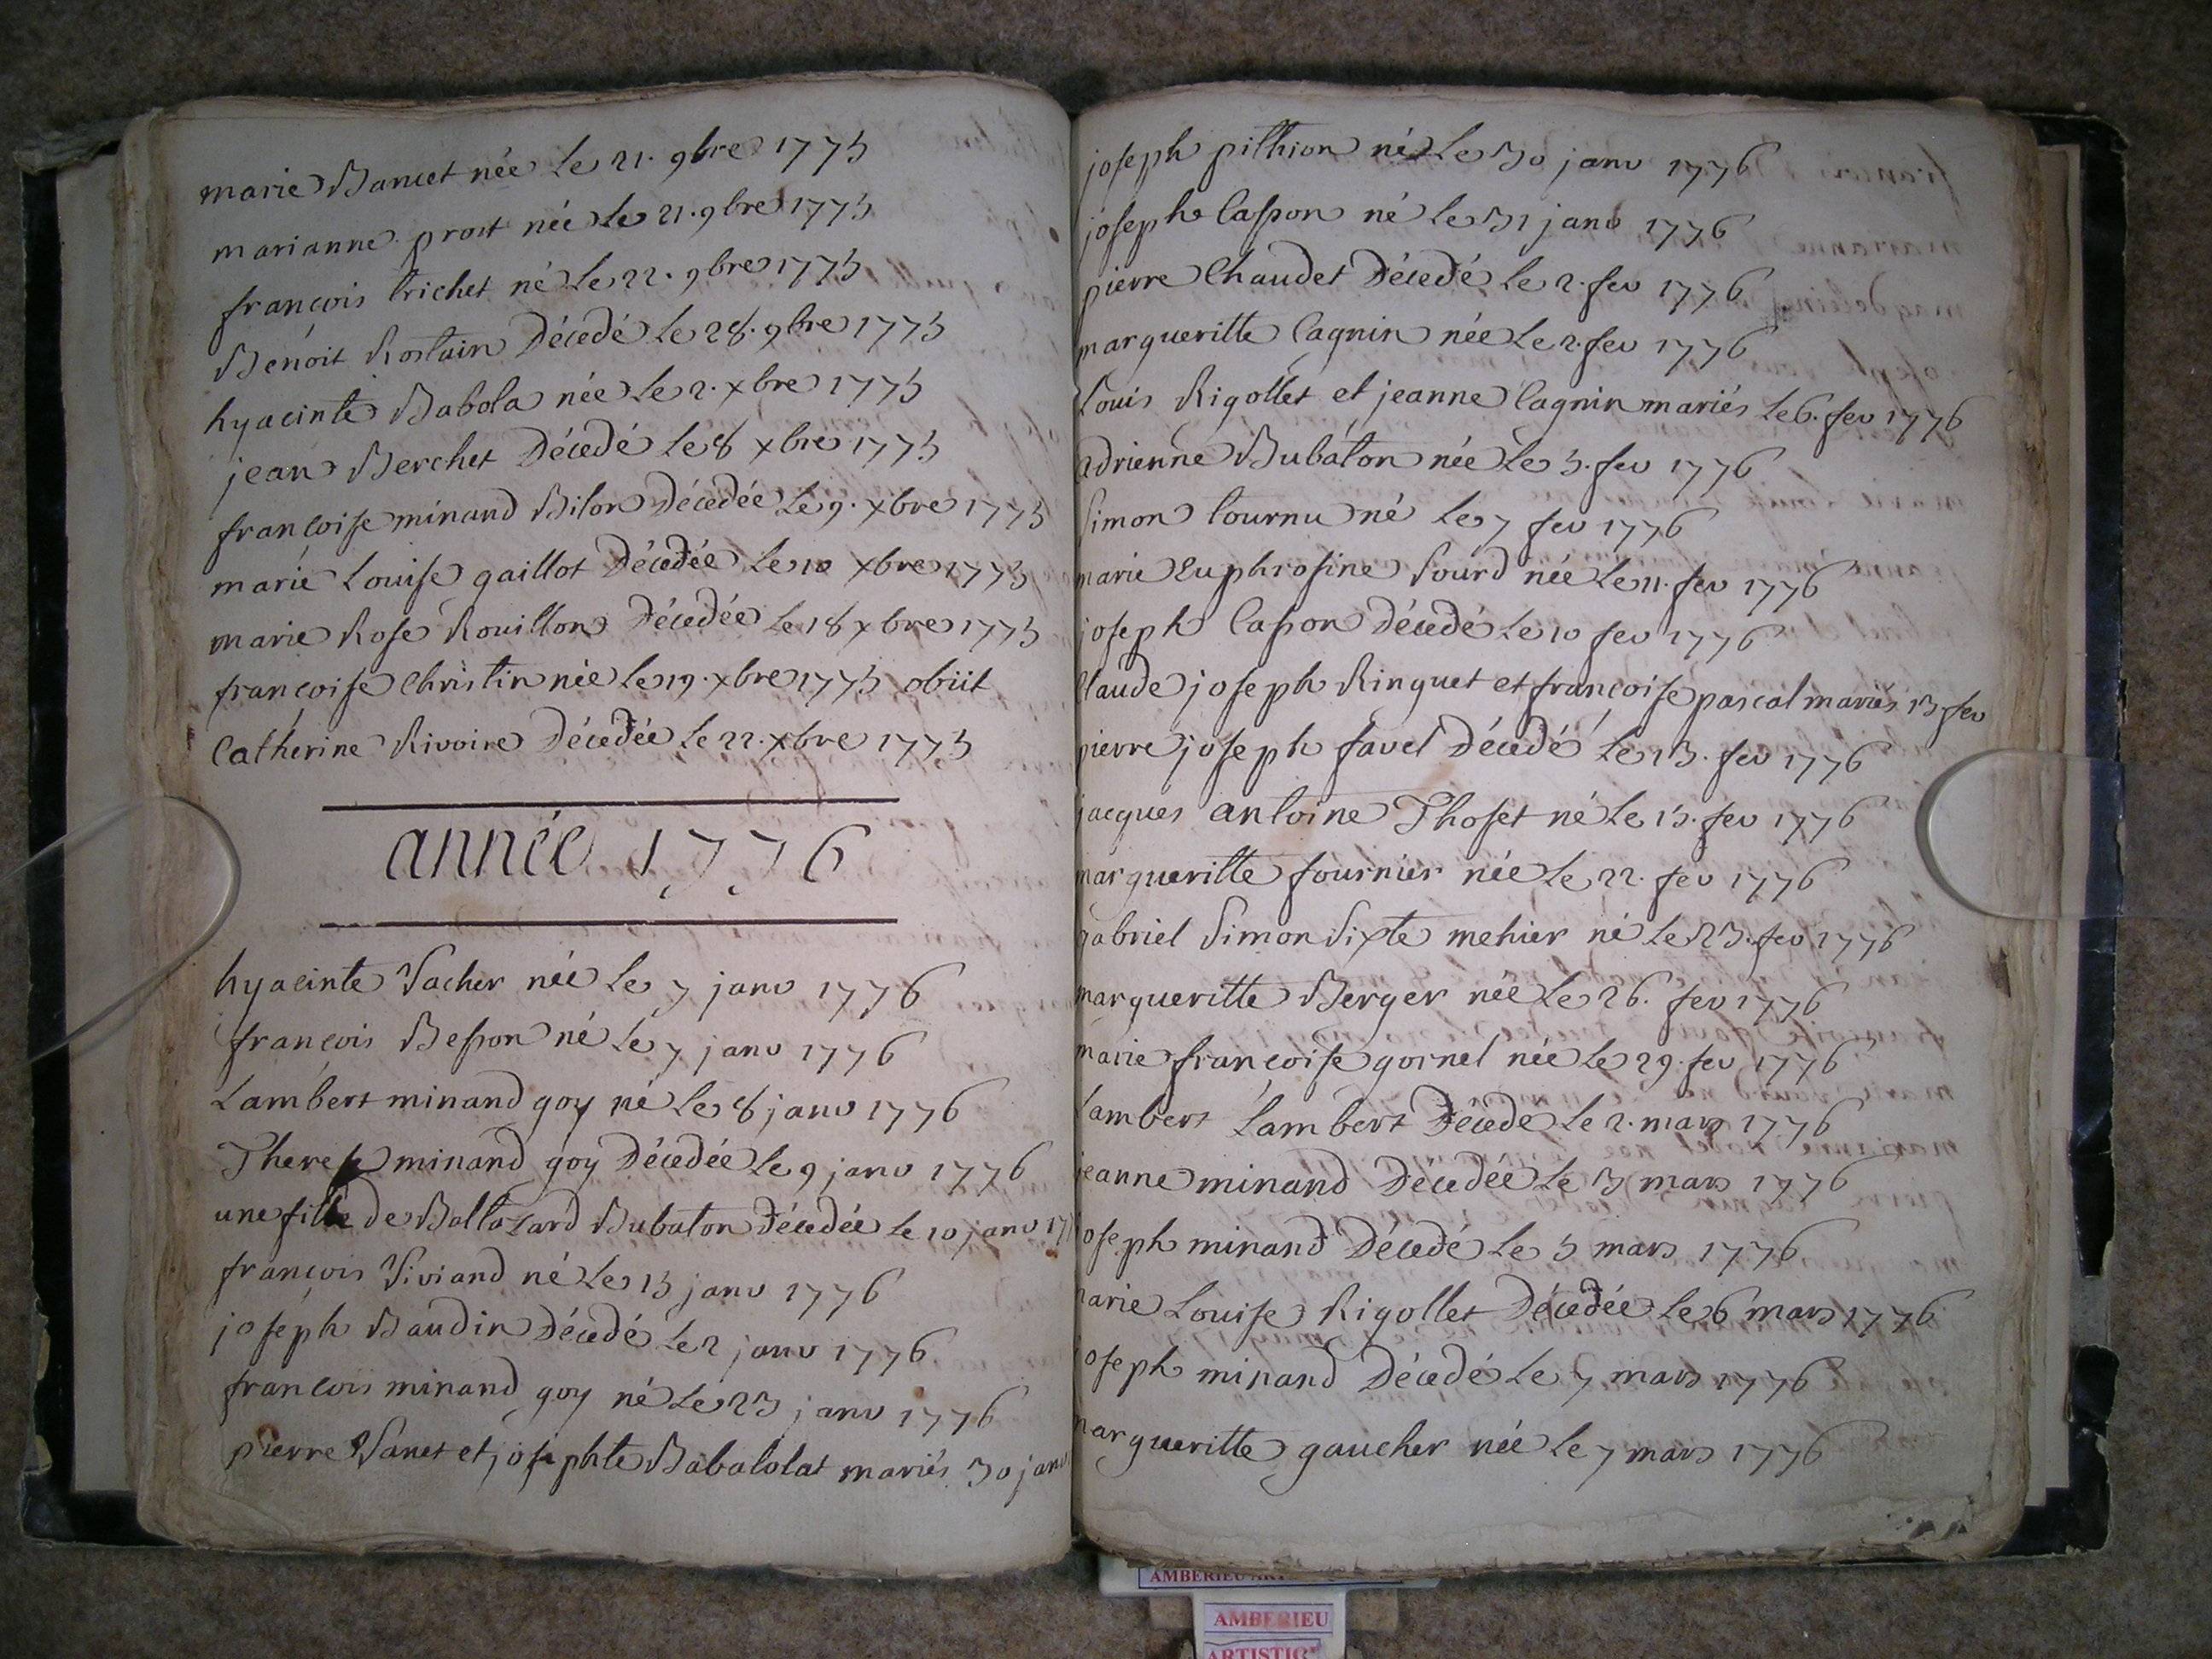 marie Bancet née le 21. 9bre 1775
marianne prost née le 21. 9bre 1775
françois trichet né le 22. 9bre 1775
Benoit Rostain Décedé le 28. 9bre 1775
hyacinte Babola née le 2. xbre 1775
jean Berchet Décedé le 8 xbre 1775
françoise minand Bilon Décedée le 9. xbre 1775
marie Louise gaillot Décedée le 10 xbre 1775
marie Rose Rouillon Décedée le 18 xbre 1775
françoise Christin née le 19. xbre 1775 obiit
Catherine Rivoire Décedée le 22. xbre 1775
année 1776
hyacinte Vacher née le 7 janv 1776
françois Besson né le 7 janv 1776
Lambert minand goy né le 8 janv 1776
Therese minand goy Décedée le 9 janv 1776
une fille de Baltazard Bubaton Décedée le 10 janv 17
françois Viviand né le 15 janv 1776
joseph Baudin Décedé le 2 janv 1776
françois minand goy né le 23 janv 1776
pierre Vanet et josephte Babalolat mariés 30 janv
joseph pithion né le 30 janv 1776
joseph Casson né le 31 janv 1776
pierre Chaudet Décedé le 2. fev 1776
margueritte Cagnin née le 2. fev 1776
Louis Rigollet et jeanne Cagnin mariés le 6. fev 1776
adrienne Bubaton née le 5. fev 1776
Simon tournu né le 7 fev 1776
marie Euphrosine Sourd née le 11. fev 1776
joseph Casson Décedé le 10 fev 1776
Claude joseph Ringuet et françoise pascal mariés 13 fev
pierre joseph favel Décedé le 13. fev 1776
jacques antoine Thoset né le 15. fev 1776
margueritte fournier née le 22. fev 1776
gabriel Simon Sixte mehier né le 23. fev 1776
margueritte Berger née le 26. fev 1776
marie françoise gornel née le 29. fev 1776
Lambert Lambert Décedé le 2. mars 1776
jeanne minand Décedée le 3 mars 1776
joseph minand Décedé le 5 mars 1776
marie Louise Rigollet Décedée le 6 mars 1776
joseph minand Décedé le 7 mars 1776
margueritte gaucher née le 7 mars 1776
AMBERIEU
AMBERIEU
ARTISTIQ